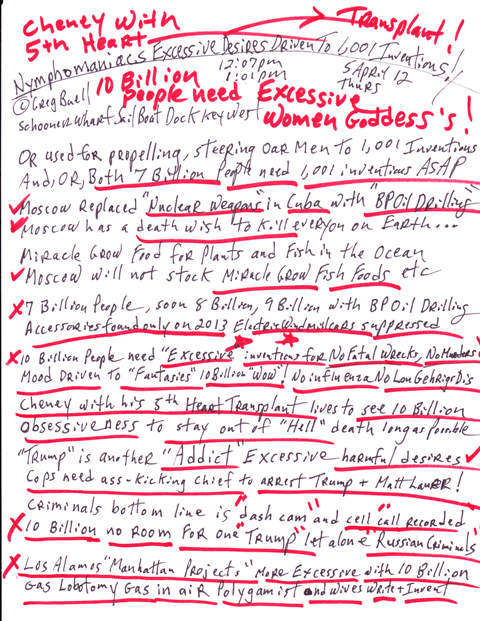 Cheney With
5th Heart → Transplant!
Nymphomaniacs Excessive Desires Driven To 1,001 Inventions!
12:07pm
1:01pm
5 April 12
Thurs
© Greg Buell 10 Billion
people need Excessive
Schooner Wharf Sail Boat Dock Key West
Women Goddess's!
OR used for propelling, steering Oar Men To 1,001 Inventions
And, OR, Both 7 Billion People need 1,001 inventions ASAP
✓ Moscow Replaced "Nuclear Weapons" in Cuba with "BP Oil Drilling"
✓ Moscow has a death wish to kill everyon on Earth...
Miracle Grow Food for Plants and Fish in the Ocean
✓ Moscow will not stock Miracle Grow Fish Foods etc
x 7 Billion People, soon 8 Billion, 9 Billion with BP Oil Drilling
Accessories found only on 2013 ElectricWindmillcars suppressed
x 10 Billion People need "Excessive" inventions for No Fatal Wrecks, No Murders
Mood Driven To "Fantasies" 10 Billion "Wow"! No influenza No Lou Gehrigs Dis
Cheney with his 5th Heart Transplant lives to see 10 Billion
Obsessiveness to stay out of "Hell" death long as possible
"Trump" is another "Addict" Excessive harmful desires ✓
Cops need ass-kicking chief to arrest Trump + Matt Lauer!
Criminals bottom line is "dash cam" and cell "call recorded
x 10 Billion no room for one "Trump" let alone "Russian Criminals"
x Los Alamos "Manhattan Projects" More Excessive with 10 Billion
Gas Lobotomy Gas in air Polygamist and wives write + Invent